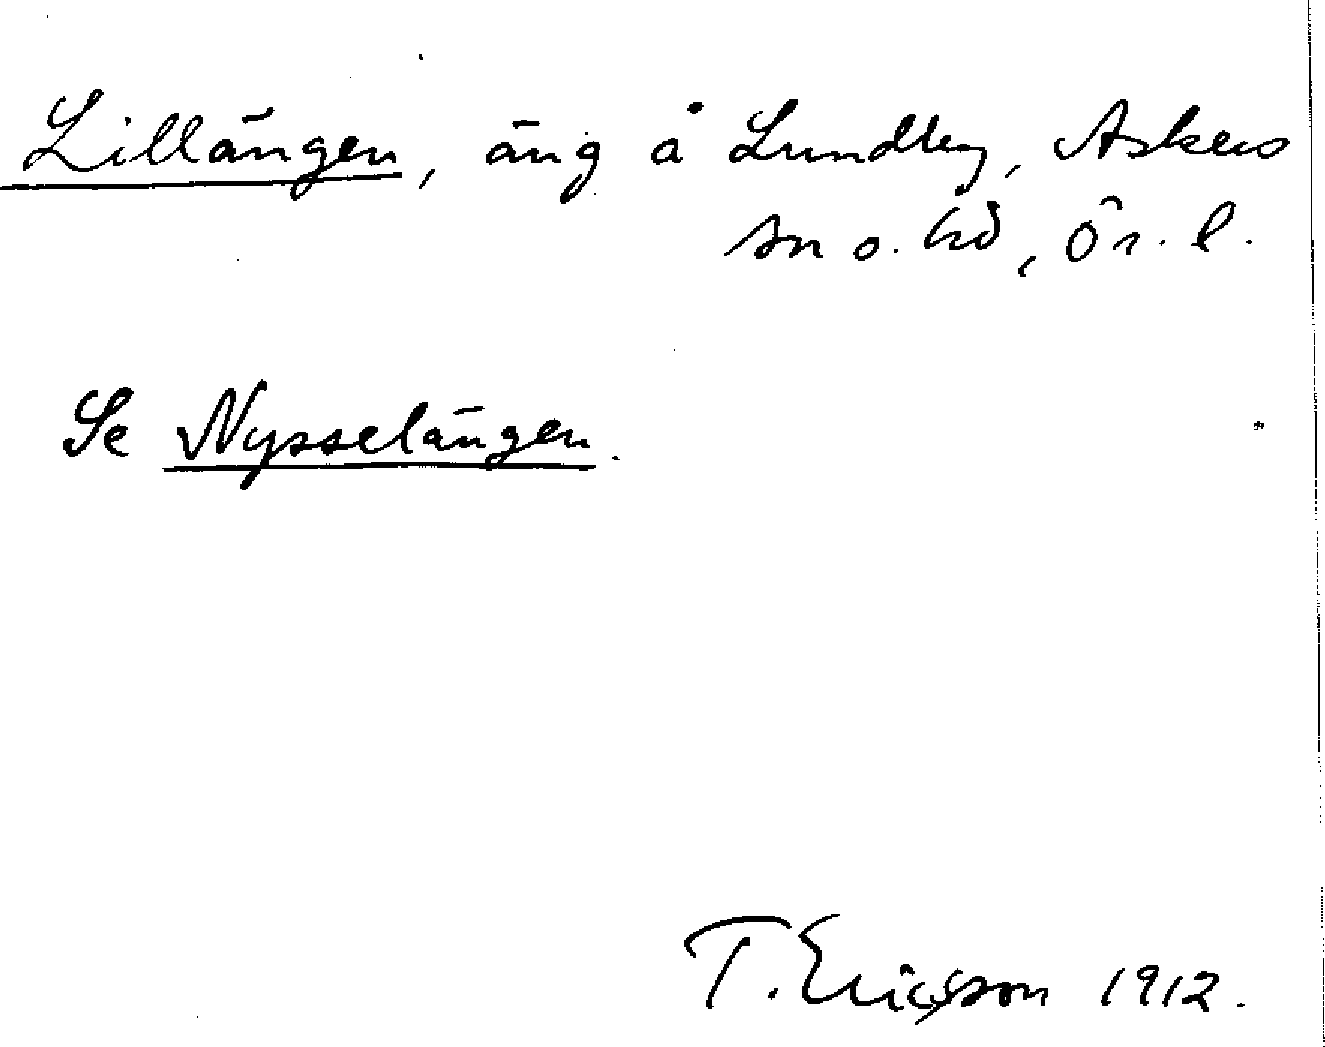 Lillängen, äng å Lundby, Askers
sn o. hd, Ör. l.
Se Nysselängen.
T. Ericsson 1912.